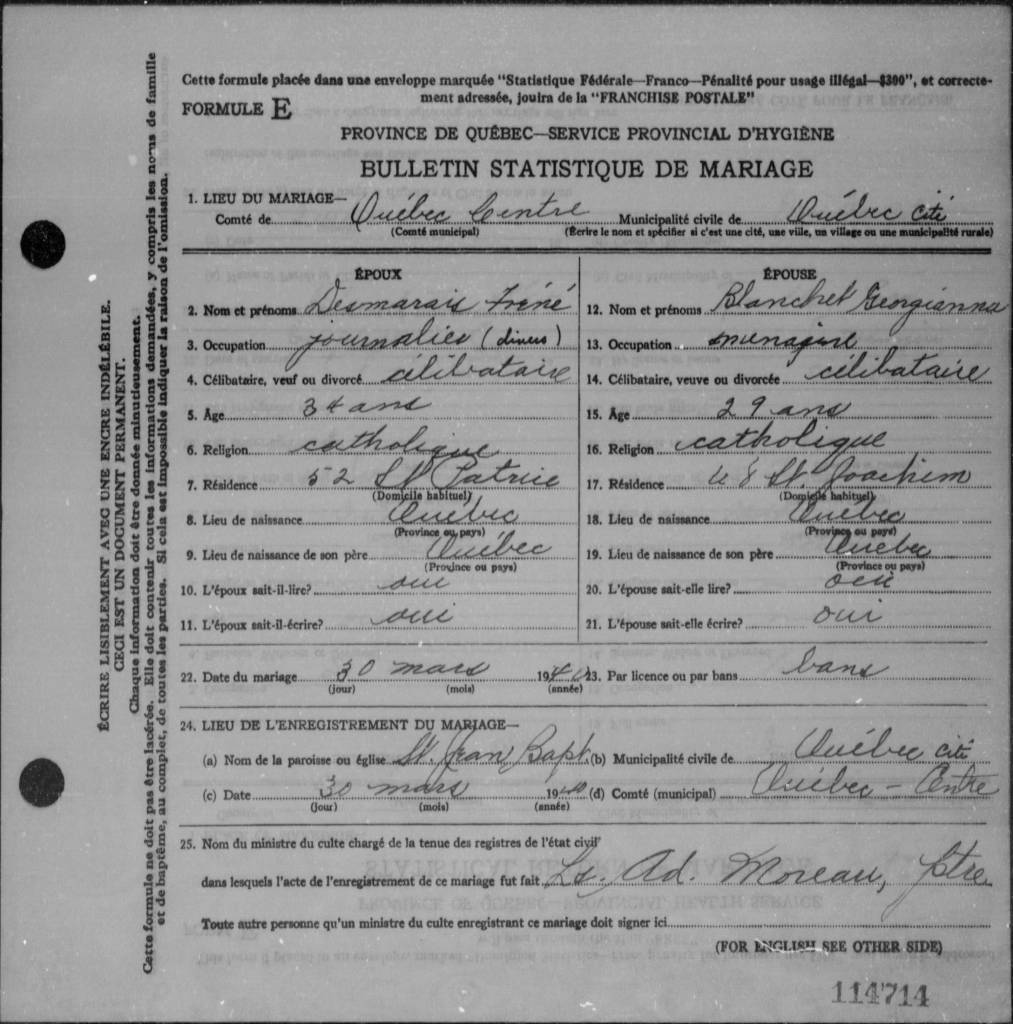 Cette formule placée dans une enveloppe marquée "Statistique Fédérale—Franco—Pénalité pour usage illégal—$300", et correcte-
ment adressée, jouira de la "FRANCHISE POSTALE"
FORMULE E
PROVINCE DE QUÉBEC—SERVICE PROVINCIAL D'HYGIÈNE
BULLETIN STATISTIQUE DE MARIAGE
1. LIEU DU MARIAGE—
Comté de Québec Centre Municipalité civile de Québec cité
(Comté municipal) (Écrire le nom et spécifier si c'est une cité, une ville, un village ou une municipalité rurale)
ÉPOUX
2. Nom et prénoms Desmarais Iréné
3. Occupation journalier (divers)
4. Célibataire, veuf ou divorcé célibataire
5. Âge 34 ans
6. Religion catholique
7. Résidence 52 St Patrice
(Domicile habituel)
8. Lieu de naissance Québec
(Province ou pays)
9. Lieu de naissance de son père Québec
(Province ou pays)
10. L'époux sait-il-lire? oui
11. L'époux sait-il-écrire? oui
ÉPOUSE
12. Nom et prénoms Blanchet Georgianna
13. Occupation
14. Célibataire, veuve ou divorcée célibataire
15. Âge 29 ans
16. Religion catholique
17. Résidence St. Joachim
(Domicile habituel)
18. Lieu de naissance Québec
(Province ou pays)
19. Lieu de naissance de son père Québec
(Province ou pays)
20. L'épouse sait-elle lire? oui
21. L'épouse sait-elle écrire? oui
22. Date du mariage 30 mars 1940 23. Par licence ou par bans bans
(jour) (mois) (année)
24. LIEU DE L'ENREGISTREMENT DU MARIAGE—
(a) Nom de la paroisse ou église St. Jean Bapt. (b) Municipalité civile de Québec cité
(c) Date 30 mars 1940 (d) Comté (municipal) Québec - Centre
(jour) (mois) (année)
25. Nom du ministre du culte chargé de la tenue des registres de l'état civil
dans lesquels l'acte de l'enregistrement de ce mariage fut fait Ls. Ad. Moreau, ptre
Toute autre personne qu'un ministre du culte enregistrant ce mariage doit signer ici
(FOR ENGLISH SEE OTHER SIDE)
114714
ÉCRIRE LISIBLEMENT AVEC UNE ENCRE INDÉLÉBILE.
CECI EST UN DOCUMENT PERMANENT.
Chaque information doit être donnée minutieusement.
Cette formule ne doit pas être lacérée. Elle doit contenir toutes les informations demandées, y compris les noms de famille
et de baptême, au complet, de toutes les parties. Si cela est impossible indiquer la raison de l'omission.